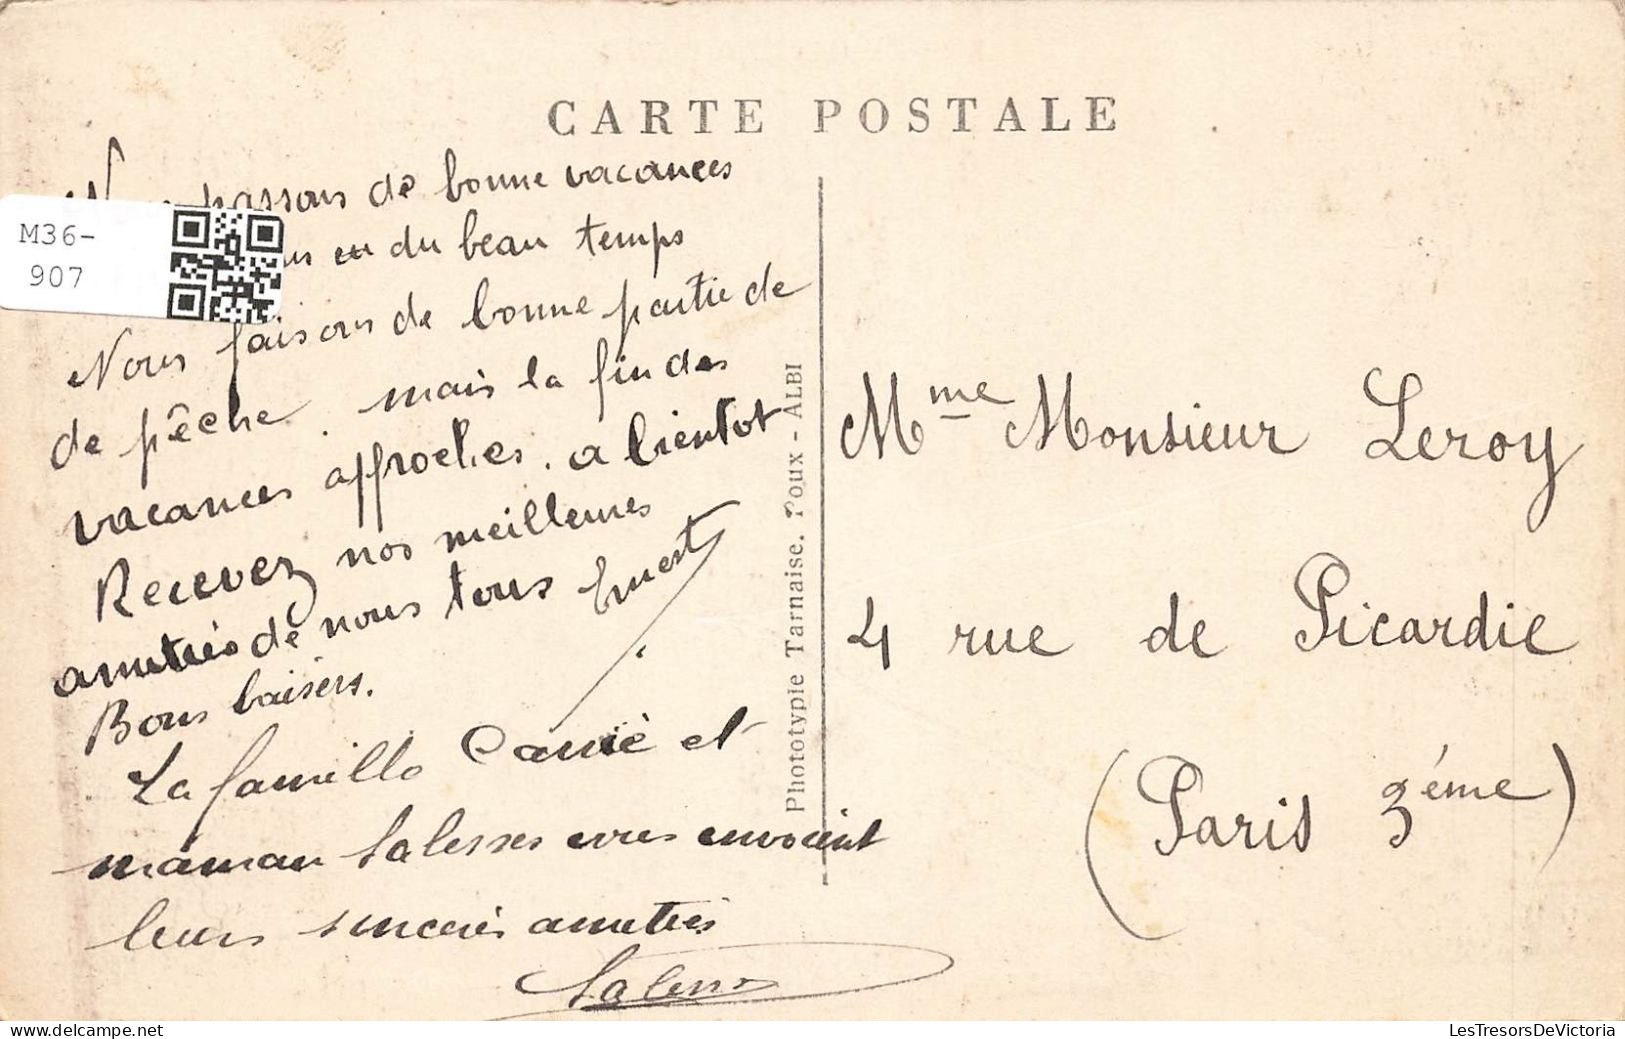 CARTE POSTALE
M36-
907
passons de bonne vacances
eu du beau temps
Nous faisons de bonne partie de
de pêche. mais la fin des
vacances approches. a bientot
Recevez nos meilleures
amitiés de nous tous Ernest
Bons baisers.
La famille et
maman Salesses vous envoient
leurs sincères amitiés
Phototypie Tarnaise. Poux - ALBI
Mme Monsieur Leroy
4 rue de Picardie
(Paris 3éme)
LesTresorsDeVictoria